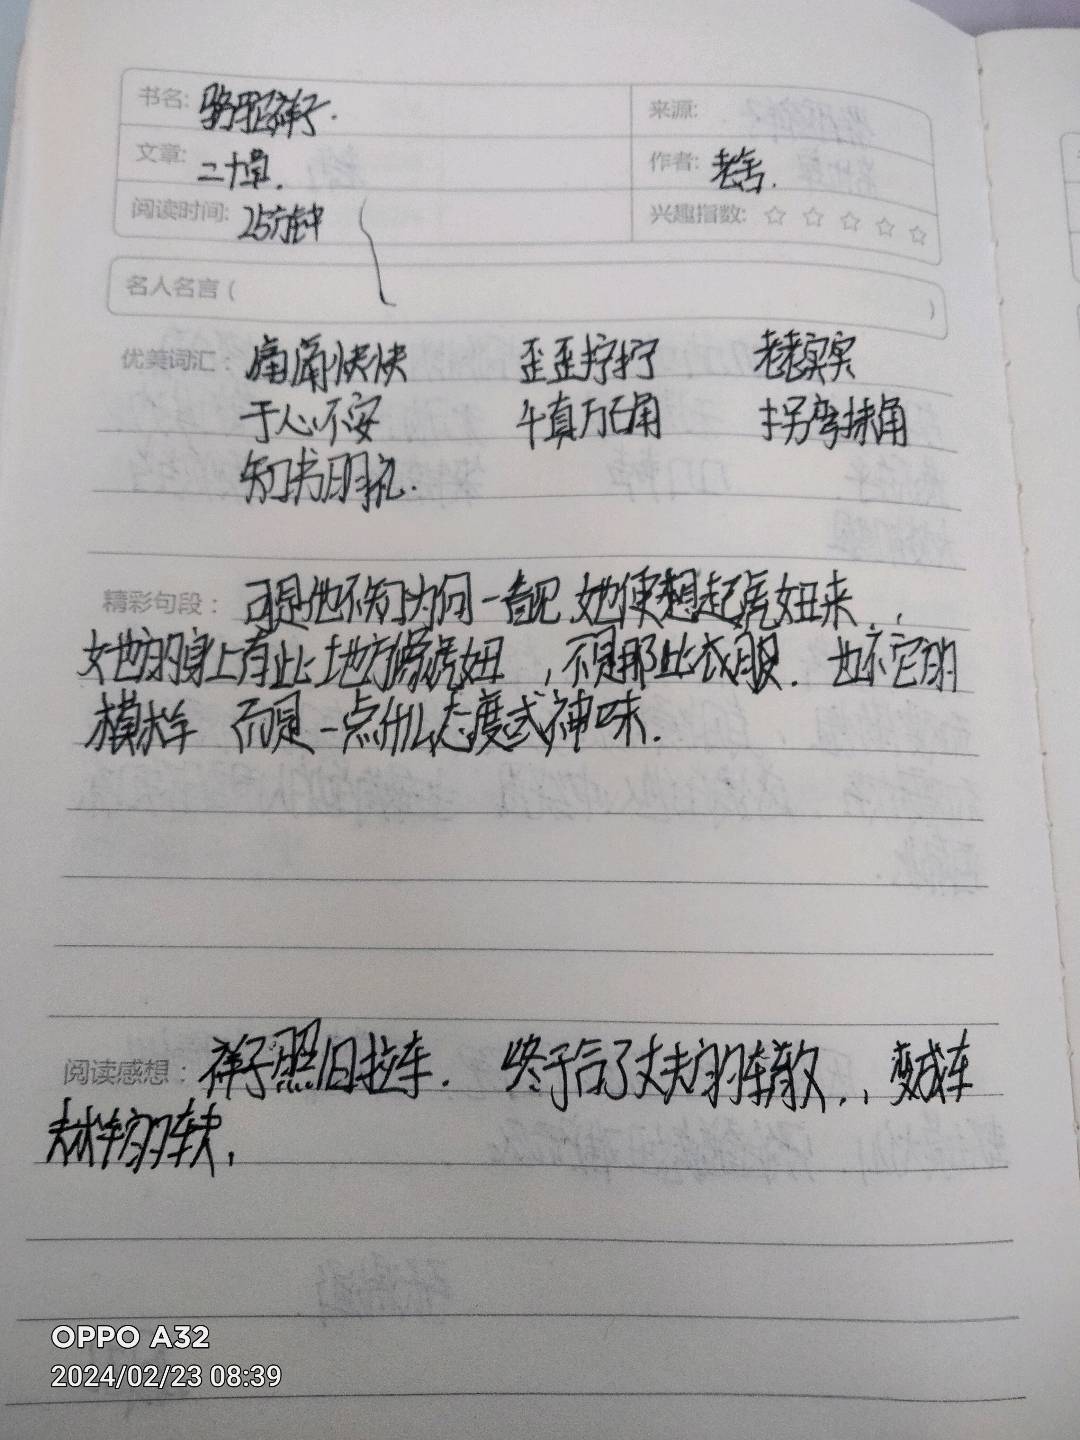 书名: 骆驼祥子.
来源:
文章: 二十章.
作者: 老舍.
阅读时间: 25分钟
兴趣指数: ☆ ☆ ☆ ☆ ☆
名人名言 ( )
优美词汇: 痛痛快快 歪歪拧拧 老老实实
于心不安 千真万确 拐弯抹角
知书明礼.
精彩句段: 可是他不知为何一看见她便想起虎妞来,
她的身上有些地方像虎妞,不是那些衣服. 也不它的
模样 而是一点什么态度式神味.
阅读感想: 祥子照旧拉车. 终于
变成车
OPPO A32
2024/02/23 08:39